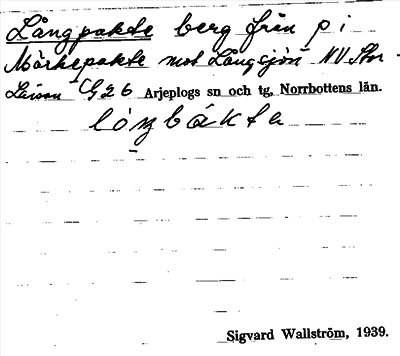 Långpakte berg från p i
Mörkepakte mot Långsjön NV Stor-
Laisan G26 Arjeplogs sn och tg, Norrbottens län.
lóŋbákta
Sigvard Wallström, 1939.